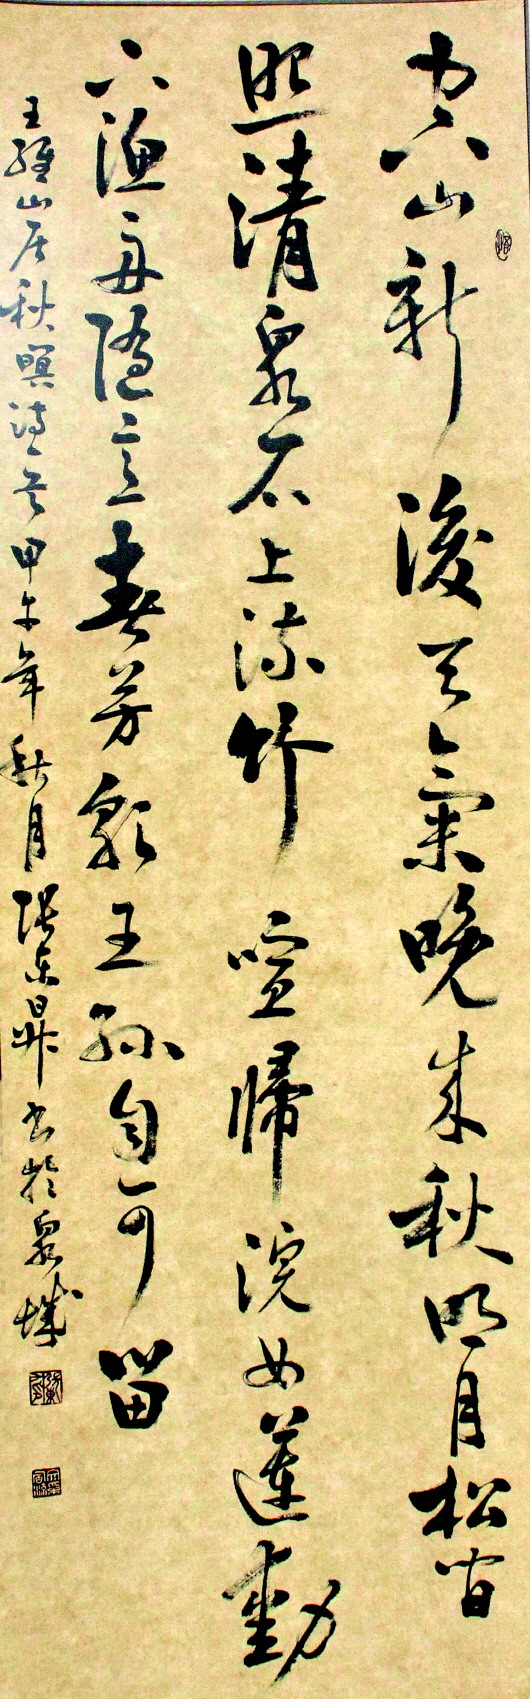 空山新後天氣晚来秋明月松間
照清泉石上流竹喧歸浣女蓮動
下漁舟隨意春芳歇王孫自可留
王維山居秋暝詩一首甲午年秋月張東昇書於泉城